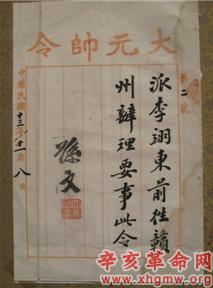 大元帥令
第二號
派李翊東前往贛
州辦理要事此令
孫文
中華民國十三年十一月八日
辛亥革命网
www.xhgmw.org